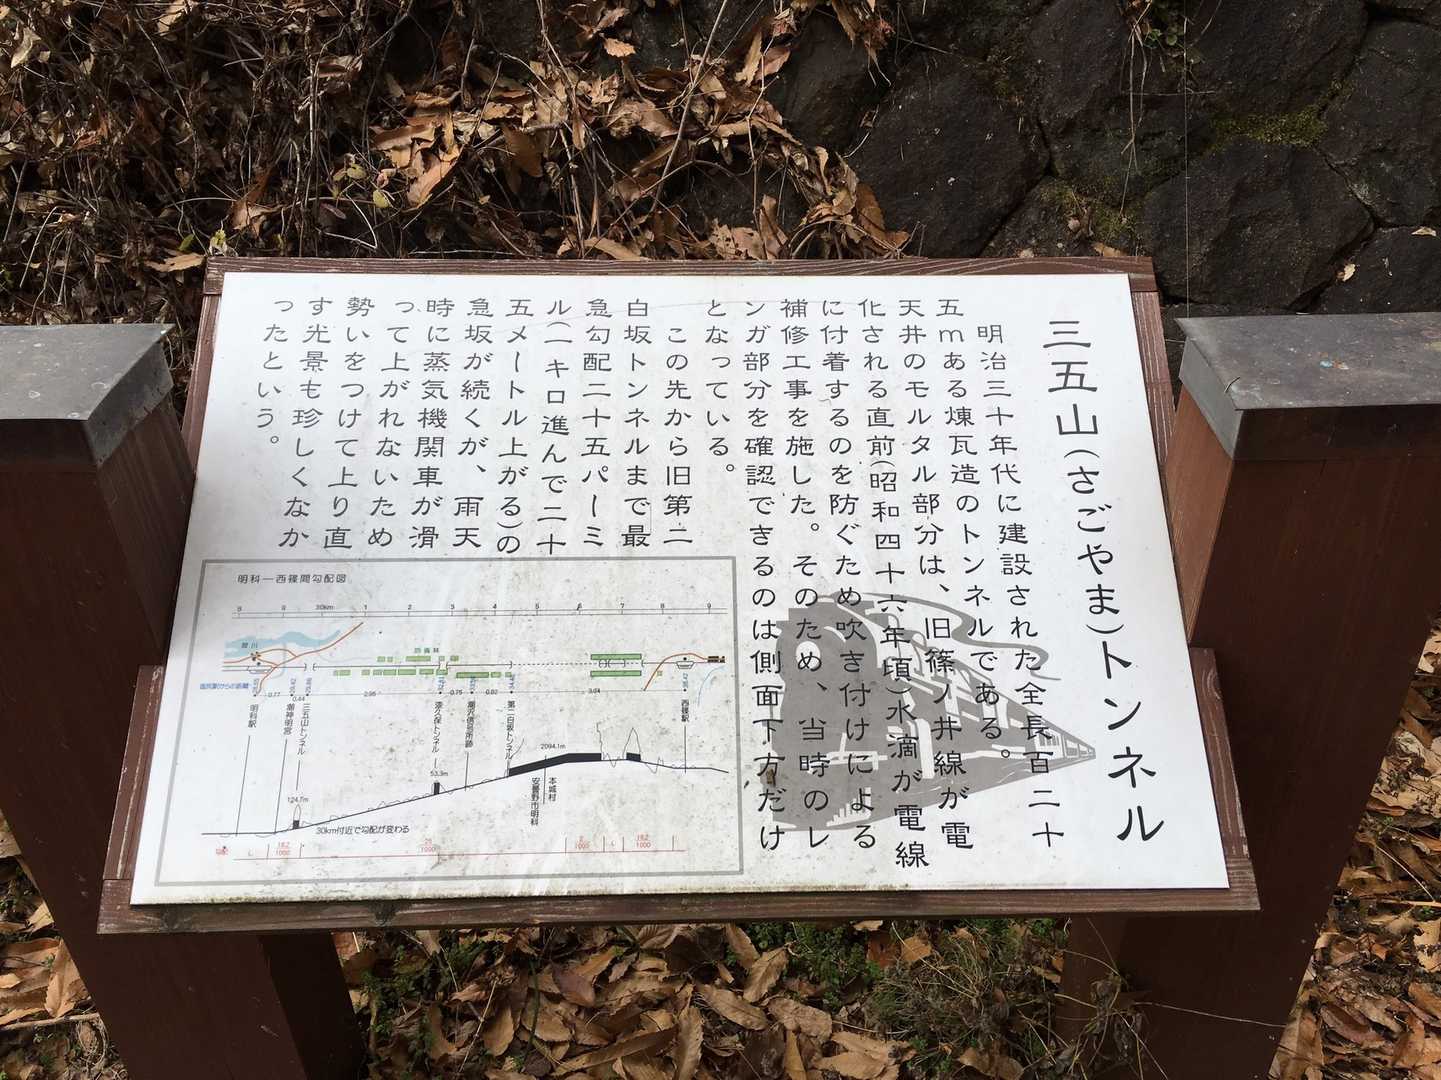 三五山(さごやま)トンネル
明治三十年代に建設された全長百二十
五mある煉瓦造のトンネルである。
天井のモルタル部分は、旧篠ノ井線が電
化される直前(昭和四十六年頃)水滴が電線
に付着するのを防ぐため吹き付けによる
補修工事を施した。そのため、当時のレ
ンガ部分を確認できるのは側面下方だけ
となっている。
この先から旧第二
白坂トンネルまで最
急勾配二十五パーミ
ル(一キロ進んで二十
五メートル上がる)の
急坂が続くが、雨天
時に蒸気機関車が滑
って上がれないため
勢いをつけて上り直
す光景も珍しくなか
ったという。
明科―西篠間勾配図
8 9 30km 1 2 3 4 5 6 7 8 9
犀川
防備林
塩尻駅からの距離
0.77 0.44 2.95 0.75 0.82 3.04
明科駅
潮神明宮
三五山トンネル
漆久保トンネル
潮沢信号所跡
第二白坂トンネル
西篠駅
2094.1m
53.3m
124.7m
本城村
安曇野市明科
30km付近で勾配が変わる
L
25
1000
L